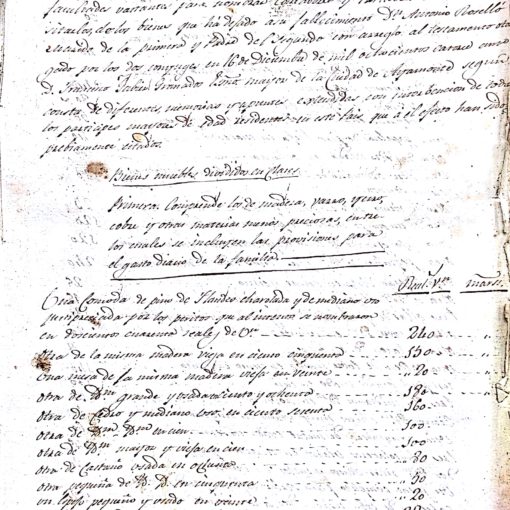 facultades bastantes para nombrar Contadores y
citarlos, de los bienes que ha dejado a su fallecimiento Dn Antonio Roselló
de la primera y Edad del Segundo con arreglo al testamento otor
gado por los dos conyuges en 16 de Diciembre de mil ochocientos catorce
Dn Granados Esno mayor de la Ciudad de Ayamonte segun
consta de diferentes memorias y apuntes extendidas con intervencion de todos
los participes mayores de edad residentes en este Pais, que á el efecto han sido
prebiamente citados.
Bienes muebles divididos en Clases
Primera. Conprende los de madera, varro, yerro,
cobre y otras materias menos preciosas, entre
los cuales se incluyen las provisiones para
el gasto diario de la familia
Real.s Vn mãrs.
Una Comoda de pino de Flandes charolada y de mediano uso
justipreciada por los peritos que al intento se nombraron
en doscientos cuarenta reales de Vn 240
otra de la misma madera vieja en ciento cinquenta 150
Una mesa de la misma madera vieja en veinte 20
otra de Ydm grande y usada en ciento y ochenta 180
otra de Cedro y mediano uso en ciento sesenta 160
otra de Ydm Ydm en cien 100
otra de Ydm mayor y vieja en cien 100
otra de Castaño usada en ochenta 80
otra pequeña de Yd. Yd. en cinquenta 50
un espejo pequeño y usado en veinte 20